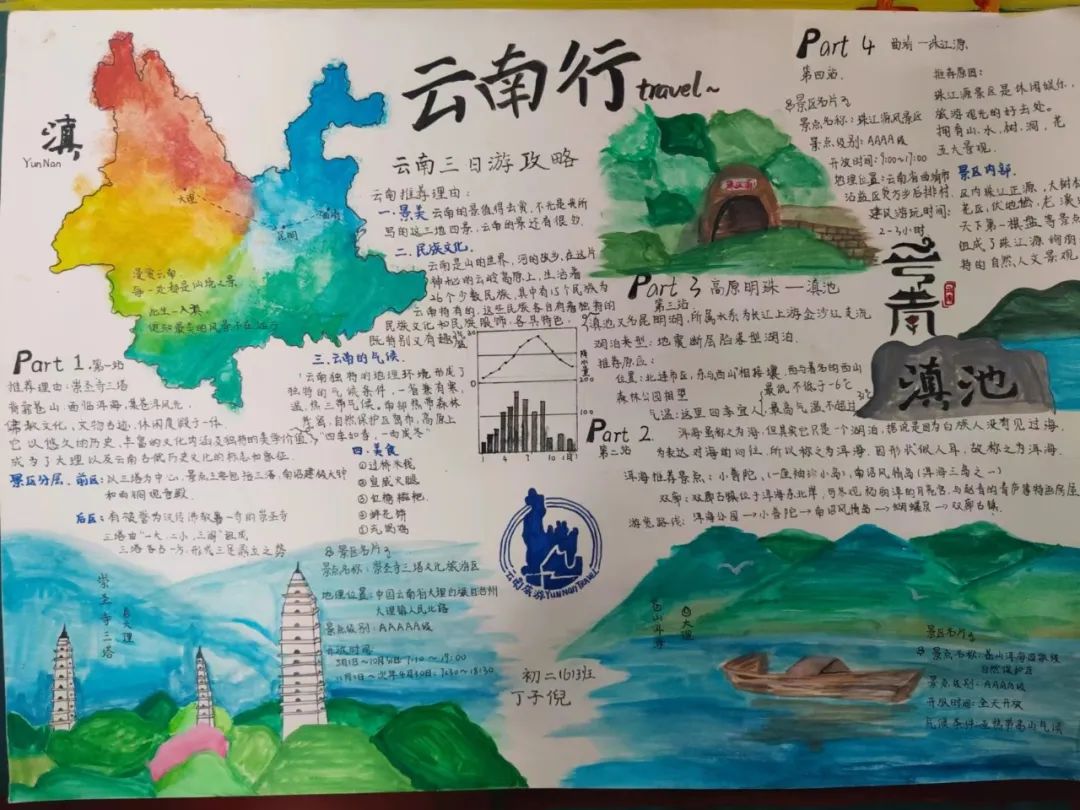 云南行
travel~
滇
YunNan
大理
昆明
曲靖
云南三日游攻略
云南推荐理由:
一.景美 云南的景值得去赏,不光是我所
写的这三地四景,云南的景还有很多.
二.民族文化.
云南是山的世界,河的故乡,在这片
神秘的云岭高原上,生活着
26个少数民族,其中有15个民族为
云南特有的,这些民族各自有着独特的
民族文化和民族服饰,各具特色,
既特别又有趣
三.云南的气候
云南独特的地理环境形成了
独特的气候条件,一省兼有寒,
温,热三带气候,南部热带雨林
"四季如春,一雨成冬"
四.美食
①过桥米线
②宣威火腿
③红糖糍粑
④鲜花饼
⑤汽锅鸡
降水量
1 4 7 10 (月)
Part 1.第一站
推荐理由:崇圣寺三塔
背靠苍山,面临洱海,集苍洱风光,
佛教文化,文物古迹,休闲度假于一体.
它以悠久的历史,丰富的文化内涵及独特的美学价值,
成为了大理以及云南古代历史文化的标志和象征.
景区分层、前区:以三塔为中心,景点主要包括三塔,南诏建极大钟
和雨铜观音殿
后区:有被誉为汉传佛教第一寺的崇圣寺
三塔由"一大,二小,三阁"组成
三塔各占一方,形成三足鼎立之势
崇圣寺三塔
大理
景区名片
景点名称:崇圣寺三塔文化旅游区
地理位置:中国云南省大理白族自治州
大理镇人民北路
景点级别:AAAAA级
开放时间
云南旅游YUNNANTRAVEL
初二1613班
丁子倪
Part 4 曲靖一珠江源
第四站.
景区名片
景点名称:珠江源风景区
景点级别:AAAA级
开放时间:9:00~17:00
地理位置:云南省曲靖市
沾益区炎方乡后排村.
建议游玩时间:
2-3小时
推荐原因:
珠江源景区是休闲娱乐,
旅游观光的好去处。
拥有山.水.树.洞.花
五大景观.
景区内部
区内珠江正源,大树杜
天下第一棋盘等景点
组成了珠江源绚丽
特的自然人文景观
珠江源
云南
Part 3 高原明珠—滇池
第三站
滇池又名昆明湖,所属水系为长江上游金沙江支流
湖泊类型:地震断层陷落型湖泊.
推荐原应:
森林公园相望
最低不低于-6℃
气温:这里四季宜人,最高气温不超过
滇池
Part 2.
第二站
洱海虽称之为海,但其实它只是一个湖泊,据说是因为白族人没有见过海.
为表达对海的向往,所以称之为洱海,因形状似人耳,故称之为洱海.
洱海推荐景点:小普陀、(一座袖珍小岛),南诏风情岛(洱海三岛之一)
游览路线:洱海公园→小普陀→南诏风情岛→蝴蝶泉→双廊古镇.
大理
景区名片
景点名称:苍山洱海国家级
自然保护区
景点级别:AAAA级
开放时间:全天开放